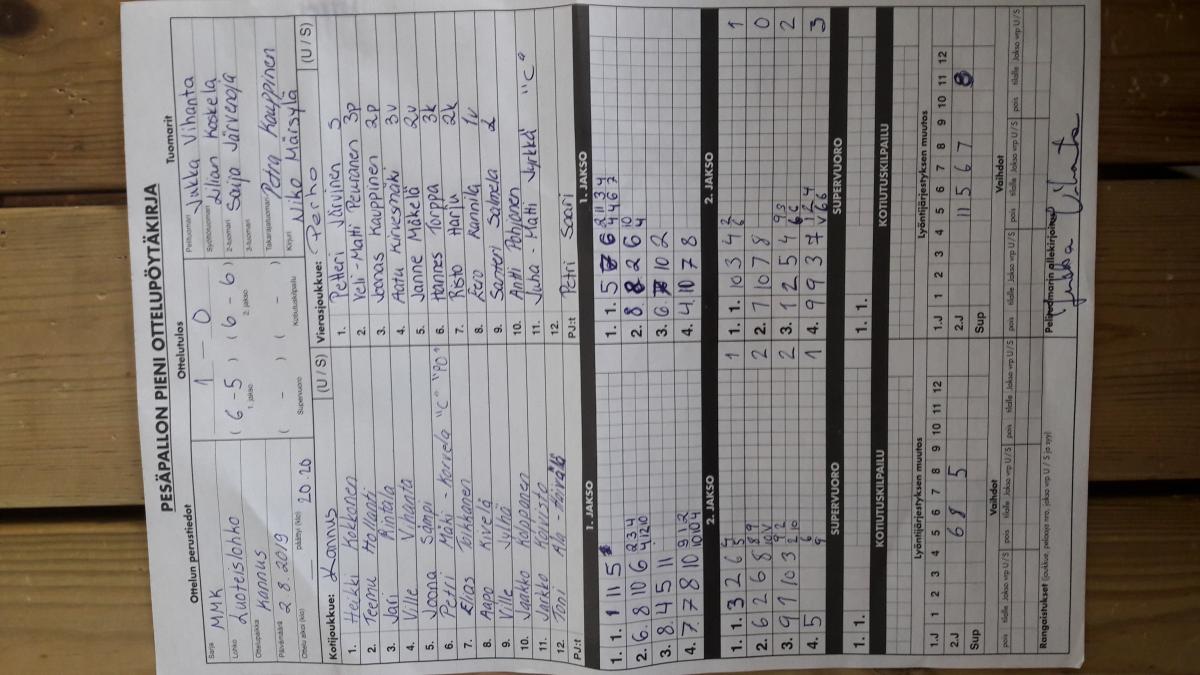 PESÄPALLON PIENI OTTELUPÖYTÄKIRJA
Ottelun perustiedot
Ottelutulos
Tuomarit
Sarja MMK
Lohko Luoteislohko
Ottelupaikka Kannus
Päivämäärä 2 8 2019
Ottelu alkoi (klo) päättyi (klo) 20.20
1 - 0
( 6 - 5 ) ( 6 - 6 )
1. jakso 2. jakso
( - ) ( - )
Supervuoro Kotiutuskilpailu
Pelituomari Jukka Vihanta
Syöttötuomari Lilian Koskela
2-tuomari Saija Järvenoja
3-tuomari
Takarajatuomari Petra Kauppinen
Kirjuri Niko Märsylä
Kotijoukkue: Kannus (U / S)
1. Heikki Kokkonen
2. Teemu Hollanti
3. Jari Rintala
4. Ville Vihanta
5. Joona Sämpi
6. Petri Mäki - Karvela "C" "PO"
7. Elias Toikkanen
8. Aapo Kivelä
9. Ville Jylhä
10. Jaakko Kolppanen
11. Jarkko Koivisto
12. Toni
PJ:t
Vierasjoukkue: Perho (U / S)
1. Petteri Järvinen 5
2. Veli - Matti Peuranen 3p
3. Joonas Kauppinen 2p
4. Aatu Kirvesmäki 3v
5. Janne Mäkelä 2v
6. Hannes Torppa 3k
7. Risto Harju 2k
8. Eero Rannila 1v
9. Santeri Salmela 2
10. Antti Pohjonen
11. Juha - Matti Jyrkkä "C"
12.
PJ:t Petri Saari
1. JAKSO
1. JAKSO
1. 1. 1 11 5
2. 6. 8 10 6 2 3 4
4 12 10
3. 8. 4 5 11
4. 7 7 8 10 9 1 2
10 10 4
1. 1. 5 6 2 11 3 4
4 4 6 7
2. 8 2 6 10
4
3. 6 10 2
4. 4 10 7 8
2. JAKSO
2. JAKSO
1. 1. 3 2 6 4 1
5
2. 6 2 6 8 8 9 2
10 V
3. 9 7 10 3 9 2 2
2 10
4. 5 6 1
9
1. 1. 10 3 4 2 1
6
2. 7 10 7 8 0
3. 1 2 5 4 9 3 2
6
4. 9 9 3 7 1 2 4 3
V 6 6
SUPERVUORO
SUPERVUORO
1. 1.
1. 1.
KOTIUTUSKILPAILU
KOTIUTUSKILPAILU
Lyöntijärjestyksen muutos
Lyöntijärjestyksen muutos
1.J 1 2 3 4 5 6 7 8 9 10 11 12
2.J 6 8 5
Sup
1.J 1 2 3 4 5 6 7 8 9 10 11 12
2.J 11 5 6 7 8
Sup
Vaihdot
Vaihdot
pois tilalle Jakso vrp U / S pois tilalle Jakso vrp U / S
pois tilalle Jakso vrp U / S pois tilalle Jakso vrp U / S
Rangaistukset (joukkue, pelaaja nro, jakso vrp, U / S ja syy)
Pelituomarin allekirjoitus
Jukka Vihanta